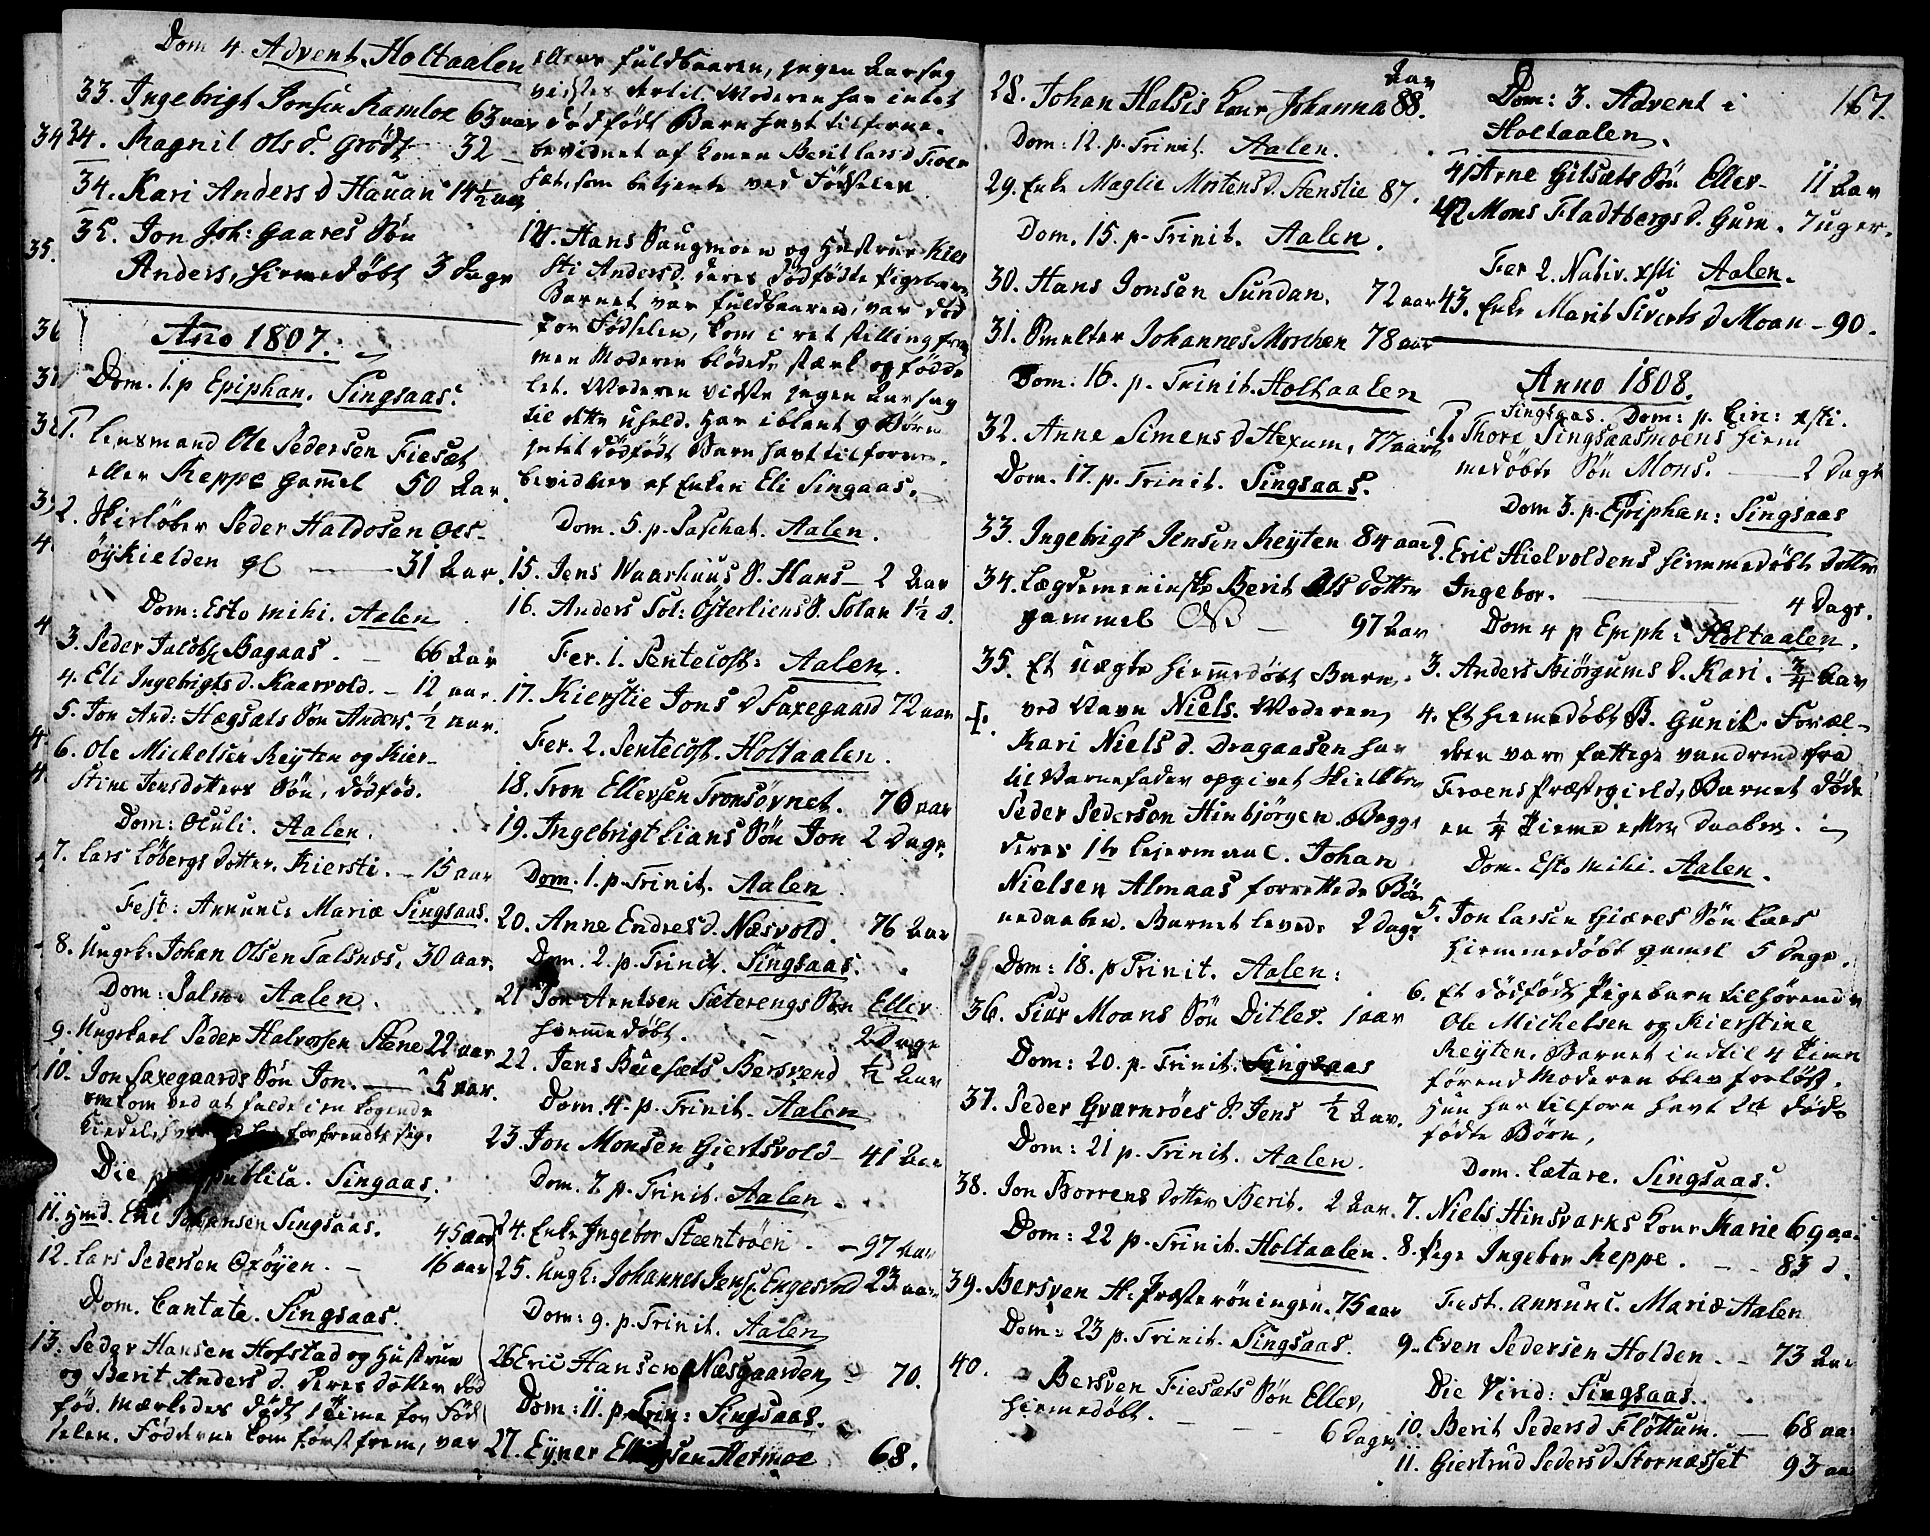 Dom 4. Advent. Holtaalen
33. Ingebrigt Jonsen Ramloe 63 aar
34. Ragnil Ols d. Grödt 32 –
34. Kari Anders d Hauan 14½ aar
35. Jon Joh: Gaares Søn
Anders, hiemedöbt 3 dage
Anno 1807.
Dom. 1. p Epiphan. Singsaas.
1. Lensmand Ole Pedersen Fiesæt
eller Reppe gamel 50 Aar.
2. Skielöber Peder Haldosen Ols-
öykielden gl — 31 Aar.
Dom: Esto mihi. Aalen
3. Peder Jacobs Bagaas. – 66 Aar
4. Eli Ingebrigts d. Kaarvold. – 12 aar.
5. Jon And: Hægsæts Søn Anders. ½ aar.
6. Ole Michelsen Reyten og Kier-
stine Jensdotters Søn, dödfød.
Dom: Oculi. Aalen.
7. Lars Löbergs dotter. Kiersti. – 15 aar
Fest: Annunc. Mariæ Singsaas.
8. Ungk. Johan Olsen Talsnes. 30 aar.
Dom: Palm: Aalen.
9. Ungkarl Peder Halvorsen Stene 22 aar
10. Jon Saxegaards Søn Jon. — 5 aar.
omkom ved at falde i en kogende
Kiedel,
Die publica. Singaas.
11. Eric Johansen Singsaas. 45 aar
12. Lars Pedersen Oxöyen. – 16 aar
Dom. Cantate. Singsaas.
13. Peder Hansen Hofstad og Hustrue
og Berit Anders d. deres dotter død
fød. Mærkedes dödt 1 Time for Föd
selen. Födderne kom forst frem, var
ellers fuldbaaren, ingen Aarsag
vidstes dertil. Moderen har intet
dödfödt Barn havt tilforne.
bevidnet af Konen Berit Lars d Fioe
sæt, som betjente ved Födselen
14. Hans Saugmoen og Hustrue Kier
sti Anders d. deres dödfödte Pigebarn
Barnet var fuldbaaren, var död
for Födselen, kom i ret stilling frem
men Moderen blödede stærk og födde
let. Moderen vidste ingen Aarsag
til dette uheld. Har iblant 9 Börn
intet dödfödt Barn havt tilforne.
bevidnes af Enken Eli Singaas.
Dom. 5. p. Paschat. Aalen.
15. Jens Waarhuus S. Hans – 2 Aar
16. Anders Sol: Österliens S. Solan 1½ d.
Fer. 1. Pentecost: Aalen.
17. Kierstie Jons d Saxegaard 72 aar
Fer. 2. Pentecost. Holtaalen.
18. Tron Ellevsen Tronsövnet. 76 aar
19. Ingebrigt Lians Søn Jon 2 dage.
Dom. 1. p. Trinit. Aalen
20. Anne Endres d. Næsvold. 76 Aar
Dom. 2. p. Trinit. Singsaas.
21 Jon Arntsen Sæterengs Søn Ellev
hiemedöbt. – 2 Dage
22. Jens Buesæts Bersvend ½ Aar
Dom. 4. p. Trinit. Aalen
23. Jon Monsen Giertsvold – 41 Aar
Dom. 7. p. Trinit. Aalen.
24. Enke Ingebor Steentröen. – 97 Aar
25. Ungk: Johannes Jens. Engesvod 23 aar
Dom: 9. p. Trinit. Aalen
26 Eric Hansen Næsgaarden 70.
Dom: 11. p. Trin: Singsaas.
27. Eyner Ellingsen Hermoe 68.
Aar
28. Johan Halsis Kone Johanna 88.
Dom: 12. p. Trinit. Aalen.
29. Enke Maglie Mortens d. Stenslie 87.
Dom. 15. p. Trinit. Aalen.
30. Hans Jonsen Sundan. 72 aar
31. Smelter Johannes Morchen 78 aar
Dom: 16. p. Trinit. Holtaalen
32. Anne Simens d Hexum. 77 aar
Dom. 17. p. Trinit. Singsaas.
33. Ingebrigt Jensen Reyten 84 aar
34. Lægdemenniske Berit Ols dotter
gammel – 97 Aar
35. Et uægte hiemedöbt Barn
ved Navn Niels. Moderen
Kari Niels d. Dragaasen har
til Barnefader opgivet
Peder Pederson Hinbjörgen. Begge
deres 1te Lejermaal. Johan
Nielsen Almaas forrettede
nedaaben. Barnet levede 2 dage
Dom: 18. p Trinit. Aalen:
36. Siur Moans Søn Ditlev. 1 aar
Dom: 20. p. Trinit. Singsaas
37. Peder Gværnröes S. Jens ½ Aar.
Dom: 21 p. Trinit. Aalen.
38. Jon Borrens dotter Berit. 2 Aar.
Dom: 22 p. Trinit. Holtaalen.
39. Bersven H. Præsteröningen. 75 aar
Dom: 23 p. Trinit. Singsaas.
40. Bersven Fiesæts Søn Ellev,
hiemedöbt. – – 6 dage
Dom: 3. Advent i 167.
Holtaalen.
41 Arne Gilsæts Søn Ellev – 11 Aar
42 Mons Fladtbergs d. Gum. 7 uger.
Fer 2. Nativ. Xsti Aalen.
43. Enke Marit Siverts d Moan – 90.
Anno 1808.
Singsaas. Dom: p. Circ: Xsti.
1. Thore Singsaasmoens hiem
medöbte Søn Mons. — 2 dage
Dom 3. p. Epiphan: Singsaas
2. Eric Hielvoldens hiemmedöbte dotter
Ingebor. — 4 dage.
Dom 4 p Epiph: Holtaalen.
3. Anders Biörgums d. Kari. ¾ Aar
4. Et hiemedöbt B. Gunil. Foræl-
dren vare fattige vandrende fra
Froens Præstegield, Barnet döde
en ¼ Time efter Daaben.
Dom. Esto mihi. Aalen.
5. Jon Larsen Giæres Søn Lars
hiemmedöbt gamel 5 dage.
6. Et dödfödt Pigebarn tilhörende
Ole Michelsen og Kierstine
Reyten. Barnet indtil 4 Timer
förend Moderen blev forlöst.
hun har tilforn havt död
födte Börn,
Dom. Lætare. Singsaas.
7. Niels Hinsvarks Kone Karie 69 aar
8. Pige Ingebor Reppe. – – 83 d.
Fest. Annunc. Mariæ Aalen
9. Even Pedersen Holden. – 73 Aar
Die Virid: Singsaas.
10. Berit Peders d Flöttum. — 68 aar
11. Giertrud Peders d Stornæsset 93 aar